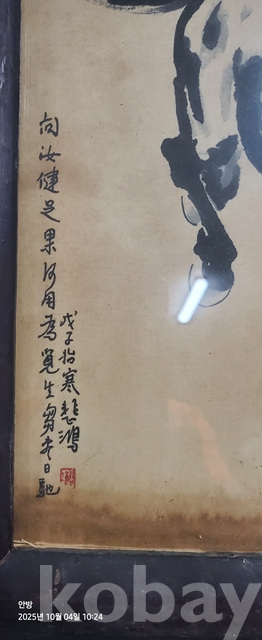 问汝健足果何用為覓生芻尽日馳
戊子始寒悲鴻
kobay
안방
2025년 10월 04일 10:24